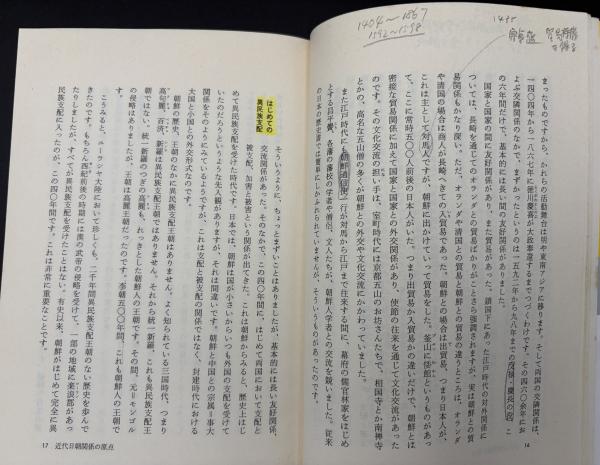 1404〜1867
1592〜1598
1435
宗貞盛
まったものですから、かれらの活動舞台は明や東南アジアに移ります。そして両国の交隣関係は、
一四〇四年から一八六七年に徳川慶喜が大政奉還するまでつづくわけです。その四六〇余年にお
よぶ交隣関係のなかで、まずかったというのは一五九二年から九八年までの文禄・慶長の役(こ
の六年間だけで、基本的には長い間の友好関係がありました。
国家と国家の間に友好関係があり、また貿易があった。鎖国下にあった江戸時代の対外関係に
ついては、長崎を通じてのオランダとの貿易ばかりがことさら強調されますが、実は朝鮮との貿
易関係もかなり深い。ただ、オランダや清国との貿易と朝鮮との貿易の違うところは、オランダ
や清国の場合は商人が長崎へきての貿易であった。朝鮮との場合は出貿易、つまり日本人が、
これは主として対馬人ですが、朝鮮に出かけていって貿易をした。釜山に倭館というものがあっ
て、ここに常時五〇〇人前後の日本人がいた。つまり出貿易か入貿易かの違いだけで、朝鮮とは
密接な貿易関係に加えて国家と国家との外交関係があり、使節の往来を通じて文化交流があった
のです。その文化交流の担い手は、室町時代には京都五山のお坊さんたちで、相国寺とか南禅寺
とかの、高名な五山の僧の多くが朝鮮との外交や文化交流にかかわっていました。
また江戸時代にも朝鮮通信使一行が対馬から江戸まで往来する間に、幕府の儒官林家をはじめ
とする昌平黌、各藩の藩校の学者や僧侶、文人たちが、朝鮮人学者との交流を競いました。従来
の日本の歴史書では簡単にしかふれられていませんが、そういうものがあったのです。
16
はじめての
異民族支配
そういうように、ちょっとまずいことはありましたが、基本的には長い友好関係、
交流関係があった。そのなかで、この四〇年間に、はじめて両国において支配と
被支配、加害と被害という関係が出てきた。これは朝鮮からみると、歴史上はじ
めて異民族支配を受けた時代です。日本では、朝鮮は国が小さいからいつも外国の支配を受けて
いたのだろうというような先入観がありますが、それは間違いです。朝鮮と中国との宗属=事大
関係をそのようにみているようですが、これは支配と被支配の関係ではなく、封建時代における
大国と小国との外交形式なのです。
朝鮮の歴史、王朝のなかに異民族王朝はありません。よく知られている三国時代、つまり
高句麗、百済、新羅は異民族支配王朝ではありません。それから統一新羅、これも異民族支配王
朝ではない。統一新羅のつぎの高麗も、れっきとした朝鮮人の王朝です。その間、元=モンゴル
の侵略はありましたが、王朝は高麗王朝だったのです。李朝五〇〇年間、これも朝鮮人の王朝で
す。
こうみると、ユーラシャ大陸において珍しくも、二千年間異民族支配王朝のない歴史を歩んで
きたのです。もちろん西紀前後の時期には漢の武帝の侵略を受けて、一部の地域に楽浪郡があっ
たりしましたが、すべてが異民族支配を受けたことはない。有史以来、朝鮮がはじめて完全に異
民族支配に入ったのが、この四〇年間です。これは非常に重要なことです。
17 近代日朝関係の原点